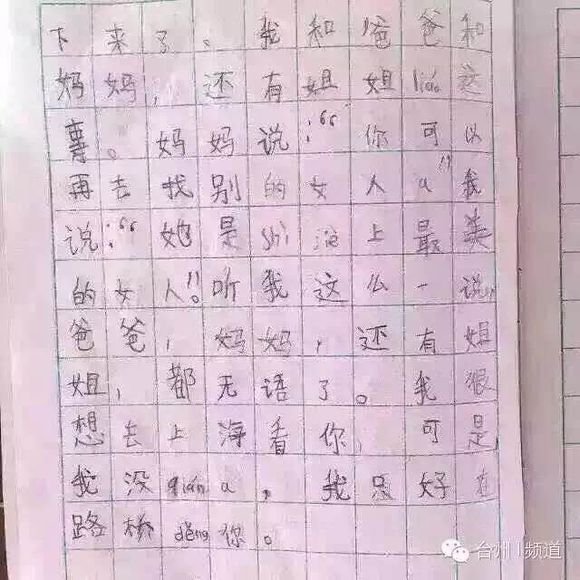 下来了。我和爸爸和
妈妈，还有姐姐liáo这
事。妈妈说：“你可以
再去找别的女人a”我
说：“她是shì jiè上最美
的女人”。听我这么一说，
爸爸，妈妈，还有姐
姐，都无语了。我狠
想去上海看你，可是
我没qián a，我只好在
路桥děng你。
台州频道